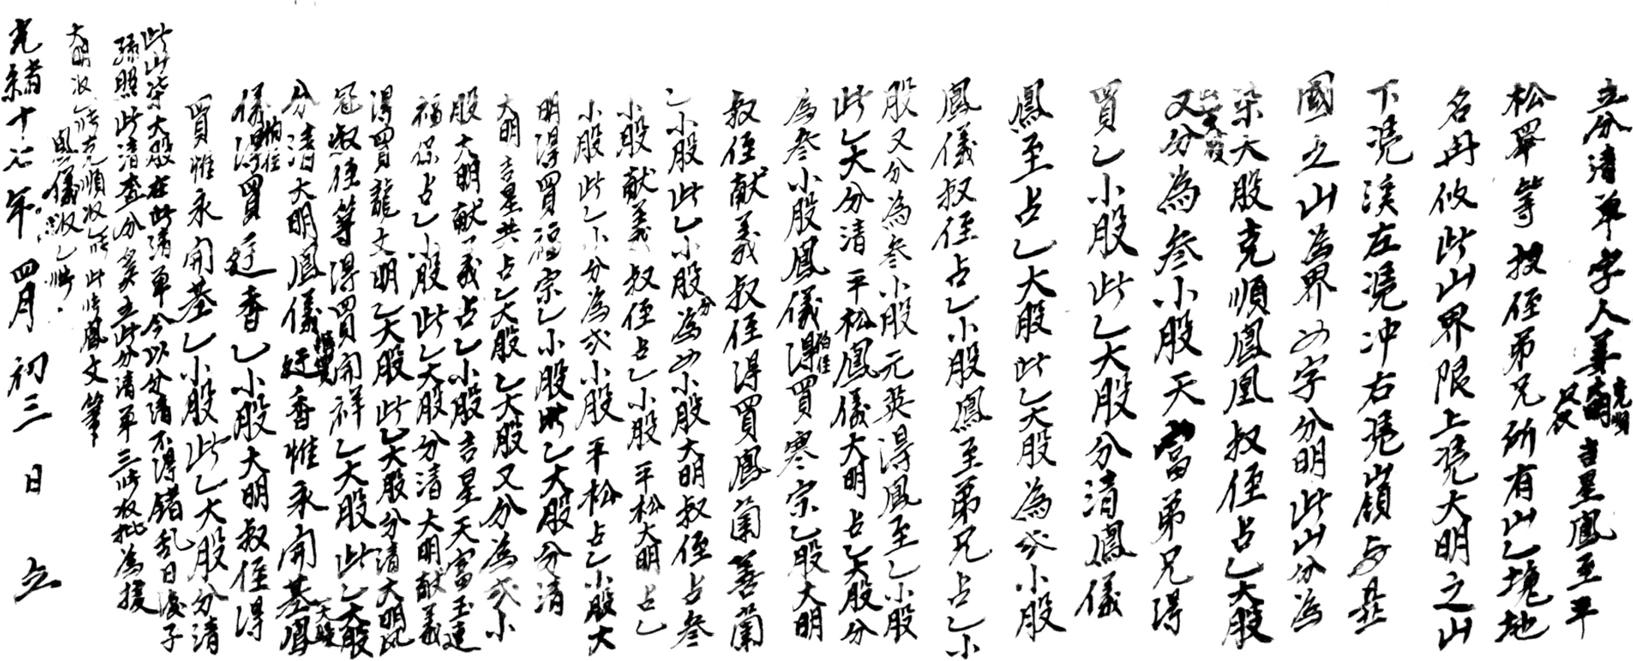 立分清单字人姜克順大明献義吉星鳳至平
松单等叔侄弟兄所有山乙塊地
名冉攸此山界限上凴大明之山
下凴溪左凴冲右凴嶺与显
國之山為界四字分明此山分為
柒大股克順鳳凰叔侄占乙大股
又分為叁小股天富弟兄得
買乙小股此乙大股分清鳳儀
鳳至占乙大股此乙大股為弍小股
鳳儀叔侄占乙小股鳳至弟兄占乙小
股又分為叁小股元英得鳳至乙小股
此乙大分清平松鳳儀大明占乙大股分
為叁小股鳳儀伯侄得買寒宗乙股大明
叔侄献義叔侄得買鳳蘭善蘭
乙小股此乙小股分為四小股大明叔侄占叁
小股献義叔侄占乙小股平松大明占乙
小股此乙小分為弍小股平松占乙小股大
明得買福宗乙小股此乙大股分清
大明吉星共占乙大股乙大股又分為弍小
股大明献義占乙小股吉星天富玉連
福保占乙小股此乙大股分清大明献義
得買龍文明乙大股此乙大股分清大明
冠叔侄等得買開祥乙大股此乙大股
分清大明鳳儀廷香惟永開基鳳
儀伯侄得買廷香乙小股大明叔侄得
買惟永開基乙小股此乙大股分清
此山柒大股在此清单今以分清不得錯乱日後子
孫照此清查分矣立此分清单三帋叔批為援
大明收乙帋克順收乙帋此帋鳳文筆
鳳儀收乙帋
光緒十七年四月初三日立